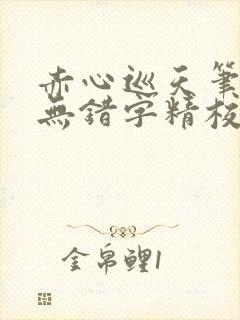 赤心巡天筆
無錯字精校
金帛鲤1